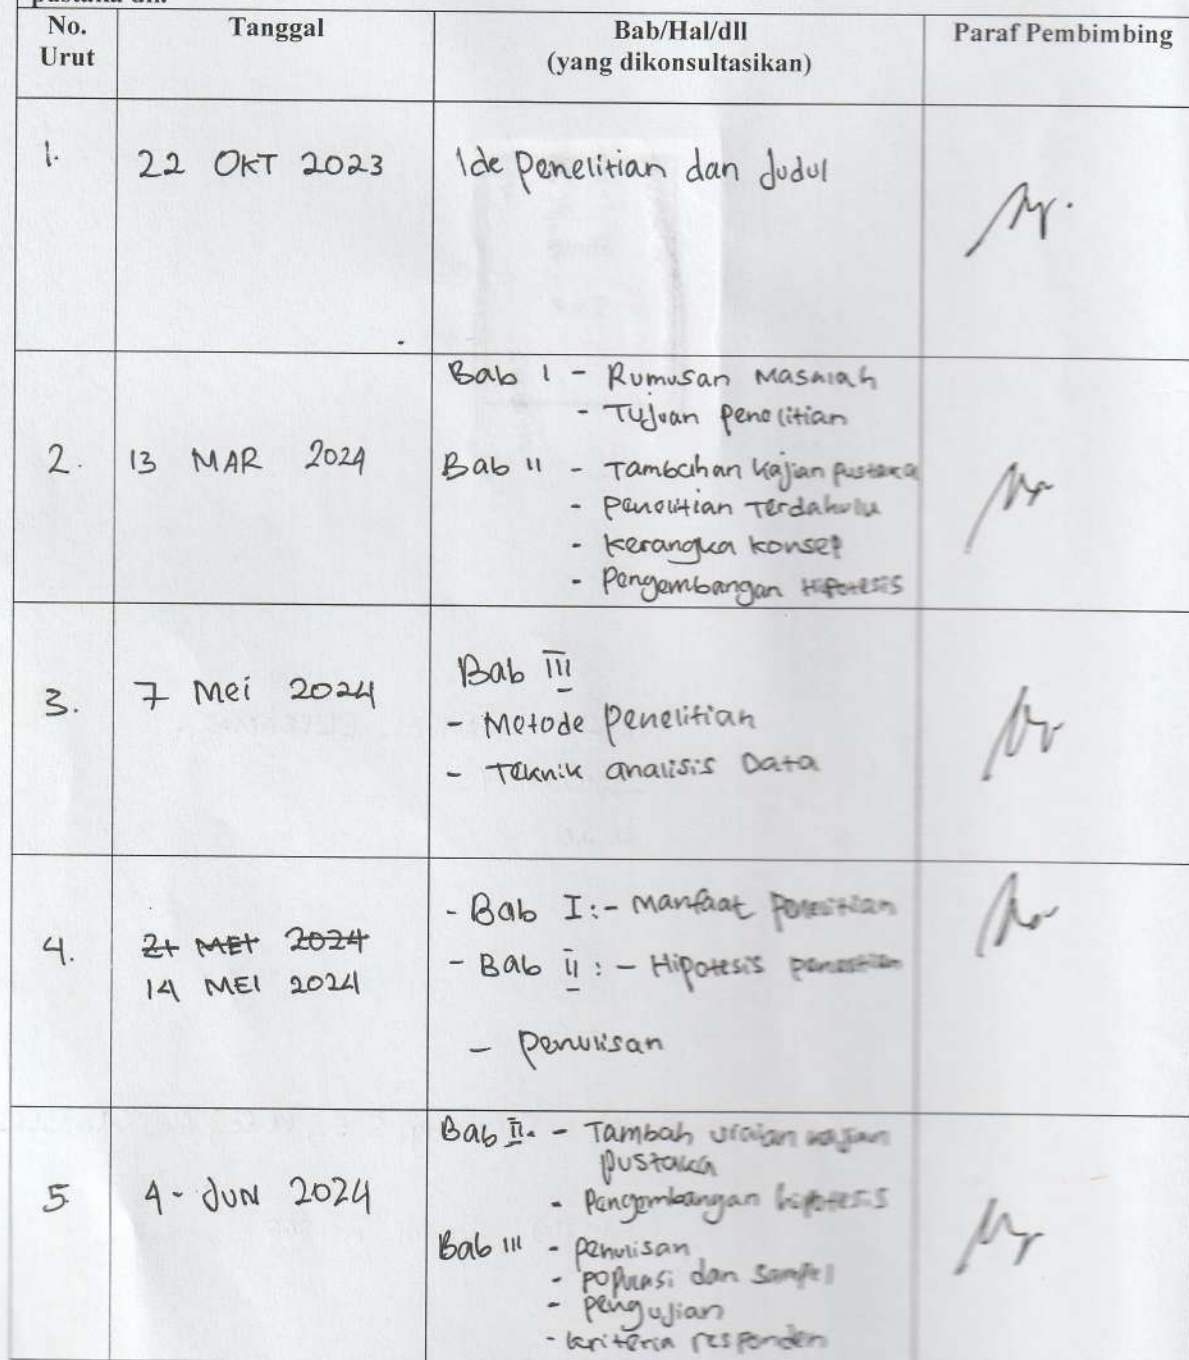 No. Urut
Tanggal
Bab/Hal/dll
(yang dikonsultasikan)
Paraf Pembimbing
1.
22 OKT 2023
Ide Penelitian dan Judul
2.
13 MAR 2024
Bab I - Rumusan Masalah
- Tujuan penelitian
Bab II - Tambahan Kajian Pustaka
- Penelitian Terdahulu
- Kerangka Konsep
- Pengembangan Hipotesis
3.
7 Mei 2024
Bab III
- Metode Penelitian
- Teknik analisis Data
4.
21 MEI 2024
14 MEI 2024
- Bab I : - Manfaat Penelitian
- Bab II : - Hipotesis penelitian
- Penulisan
5
4 - JUN 2024
Bab II. - Tambah uraian kajian
pustaka
- Pengembangan hipotesis
Bab III - Penulisan
- populasi dan sampel
- pengujian
- kriteria responden